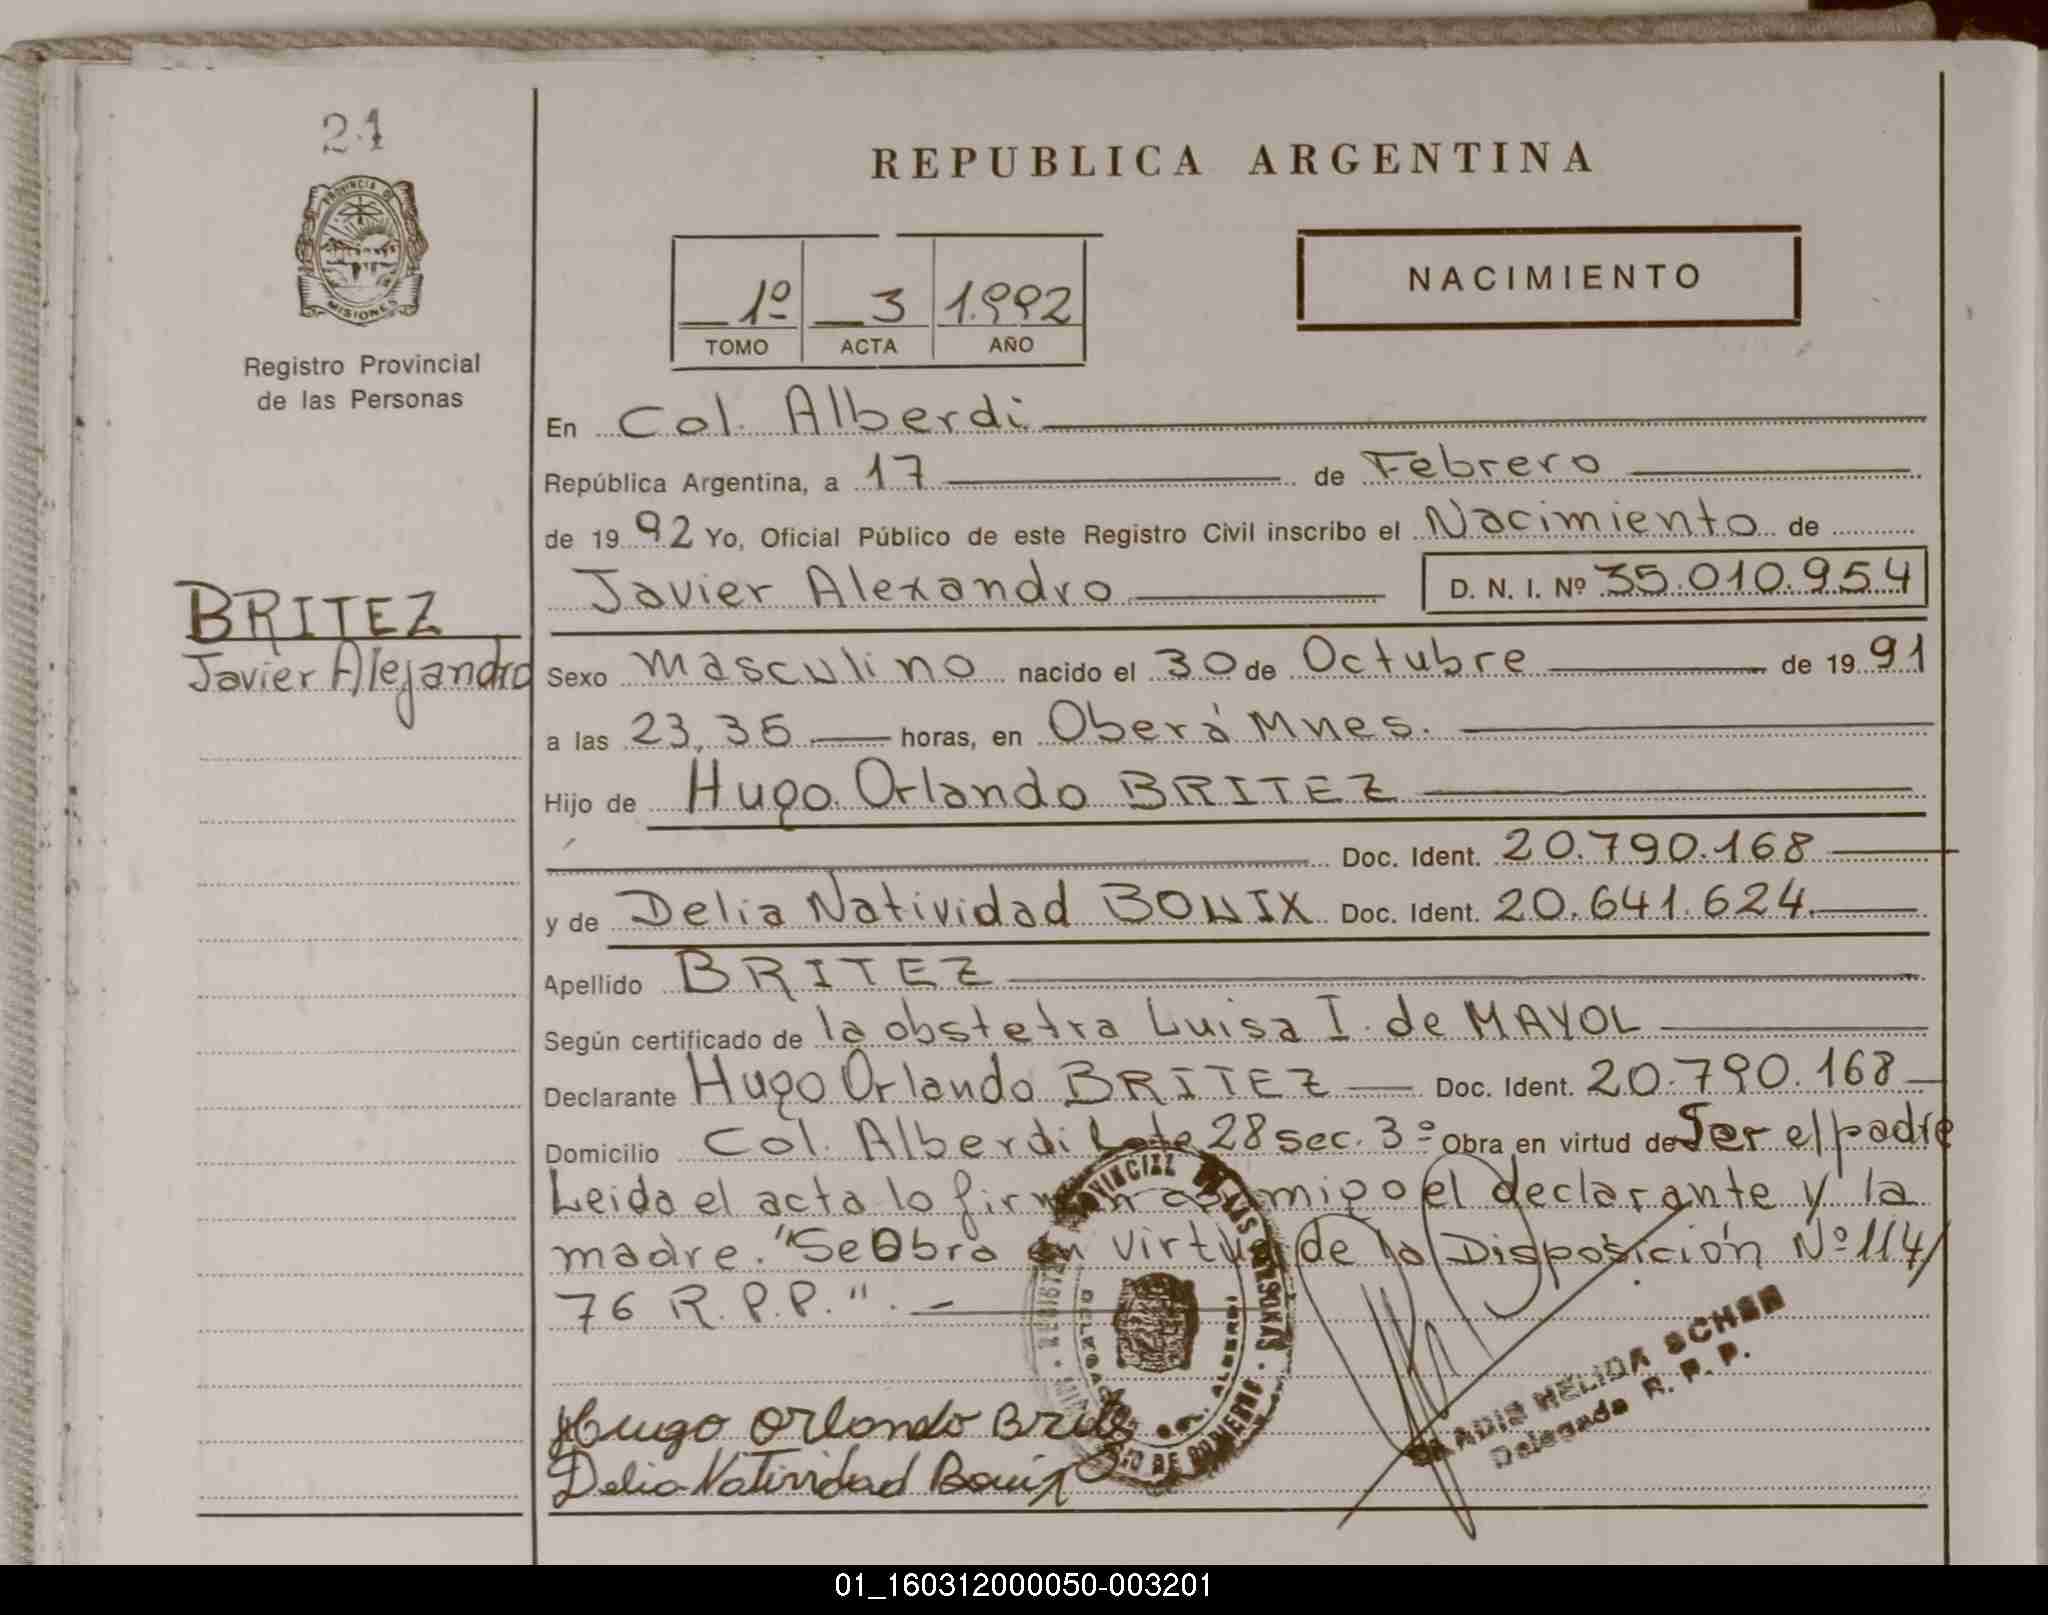 21
PROVINCIA DE
MISIONES
Registro Provincial
de las Personas
REPUBLICA ARGENTINA
1º 3 1.992
TOMO ACTA AÑO
NACIMIENTO
En Col. Alberdi
República Argentina, a 17 de Febrero
de 1992 Yo, Oficial Público de este Registro Civil inscribo el Nacimiento de
Javier Alexandro D. N. I. Nº 35.010.954
BRITEZ
Javier Alejandro
Sexo masculino nacido el 30 de Octubre de 1991
a las 23,35 horas, en Oberá Mnes.
Hijo de Hugo Orlando BRITEZ
Doc. Ident. 20.790.168
y de Delia Natividad BONIX Doc. Ident. 20.641.624
Apellido BRITEZ
Según certificado de la obstetra Luisa I. de MAYOL
Declarante Hugo Orlando BRITEZ Doc. Ident. 20.790.168
Domicilio Col. Alberdi Lote 28 sec. 3º Obra en virtud de Ser el padre
Leida el acta lo firman conmigo el declarante y la
madre. "Se Obra en virtud de la Disposición Nº 114/
76 R.P.P.".
Hugo Orlando Britez
Delia Natividad Bonix
PROVINCIAL DE LAS PERSONAS
ALBERDI
DE GOBIERNO
HELIDA
Delegada R. P. P.
01_160312000050-003201